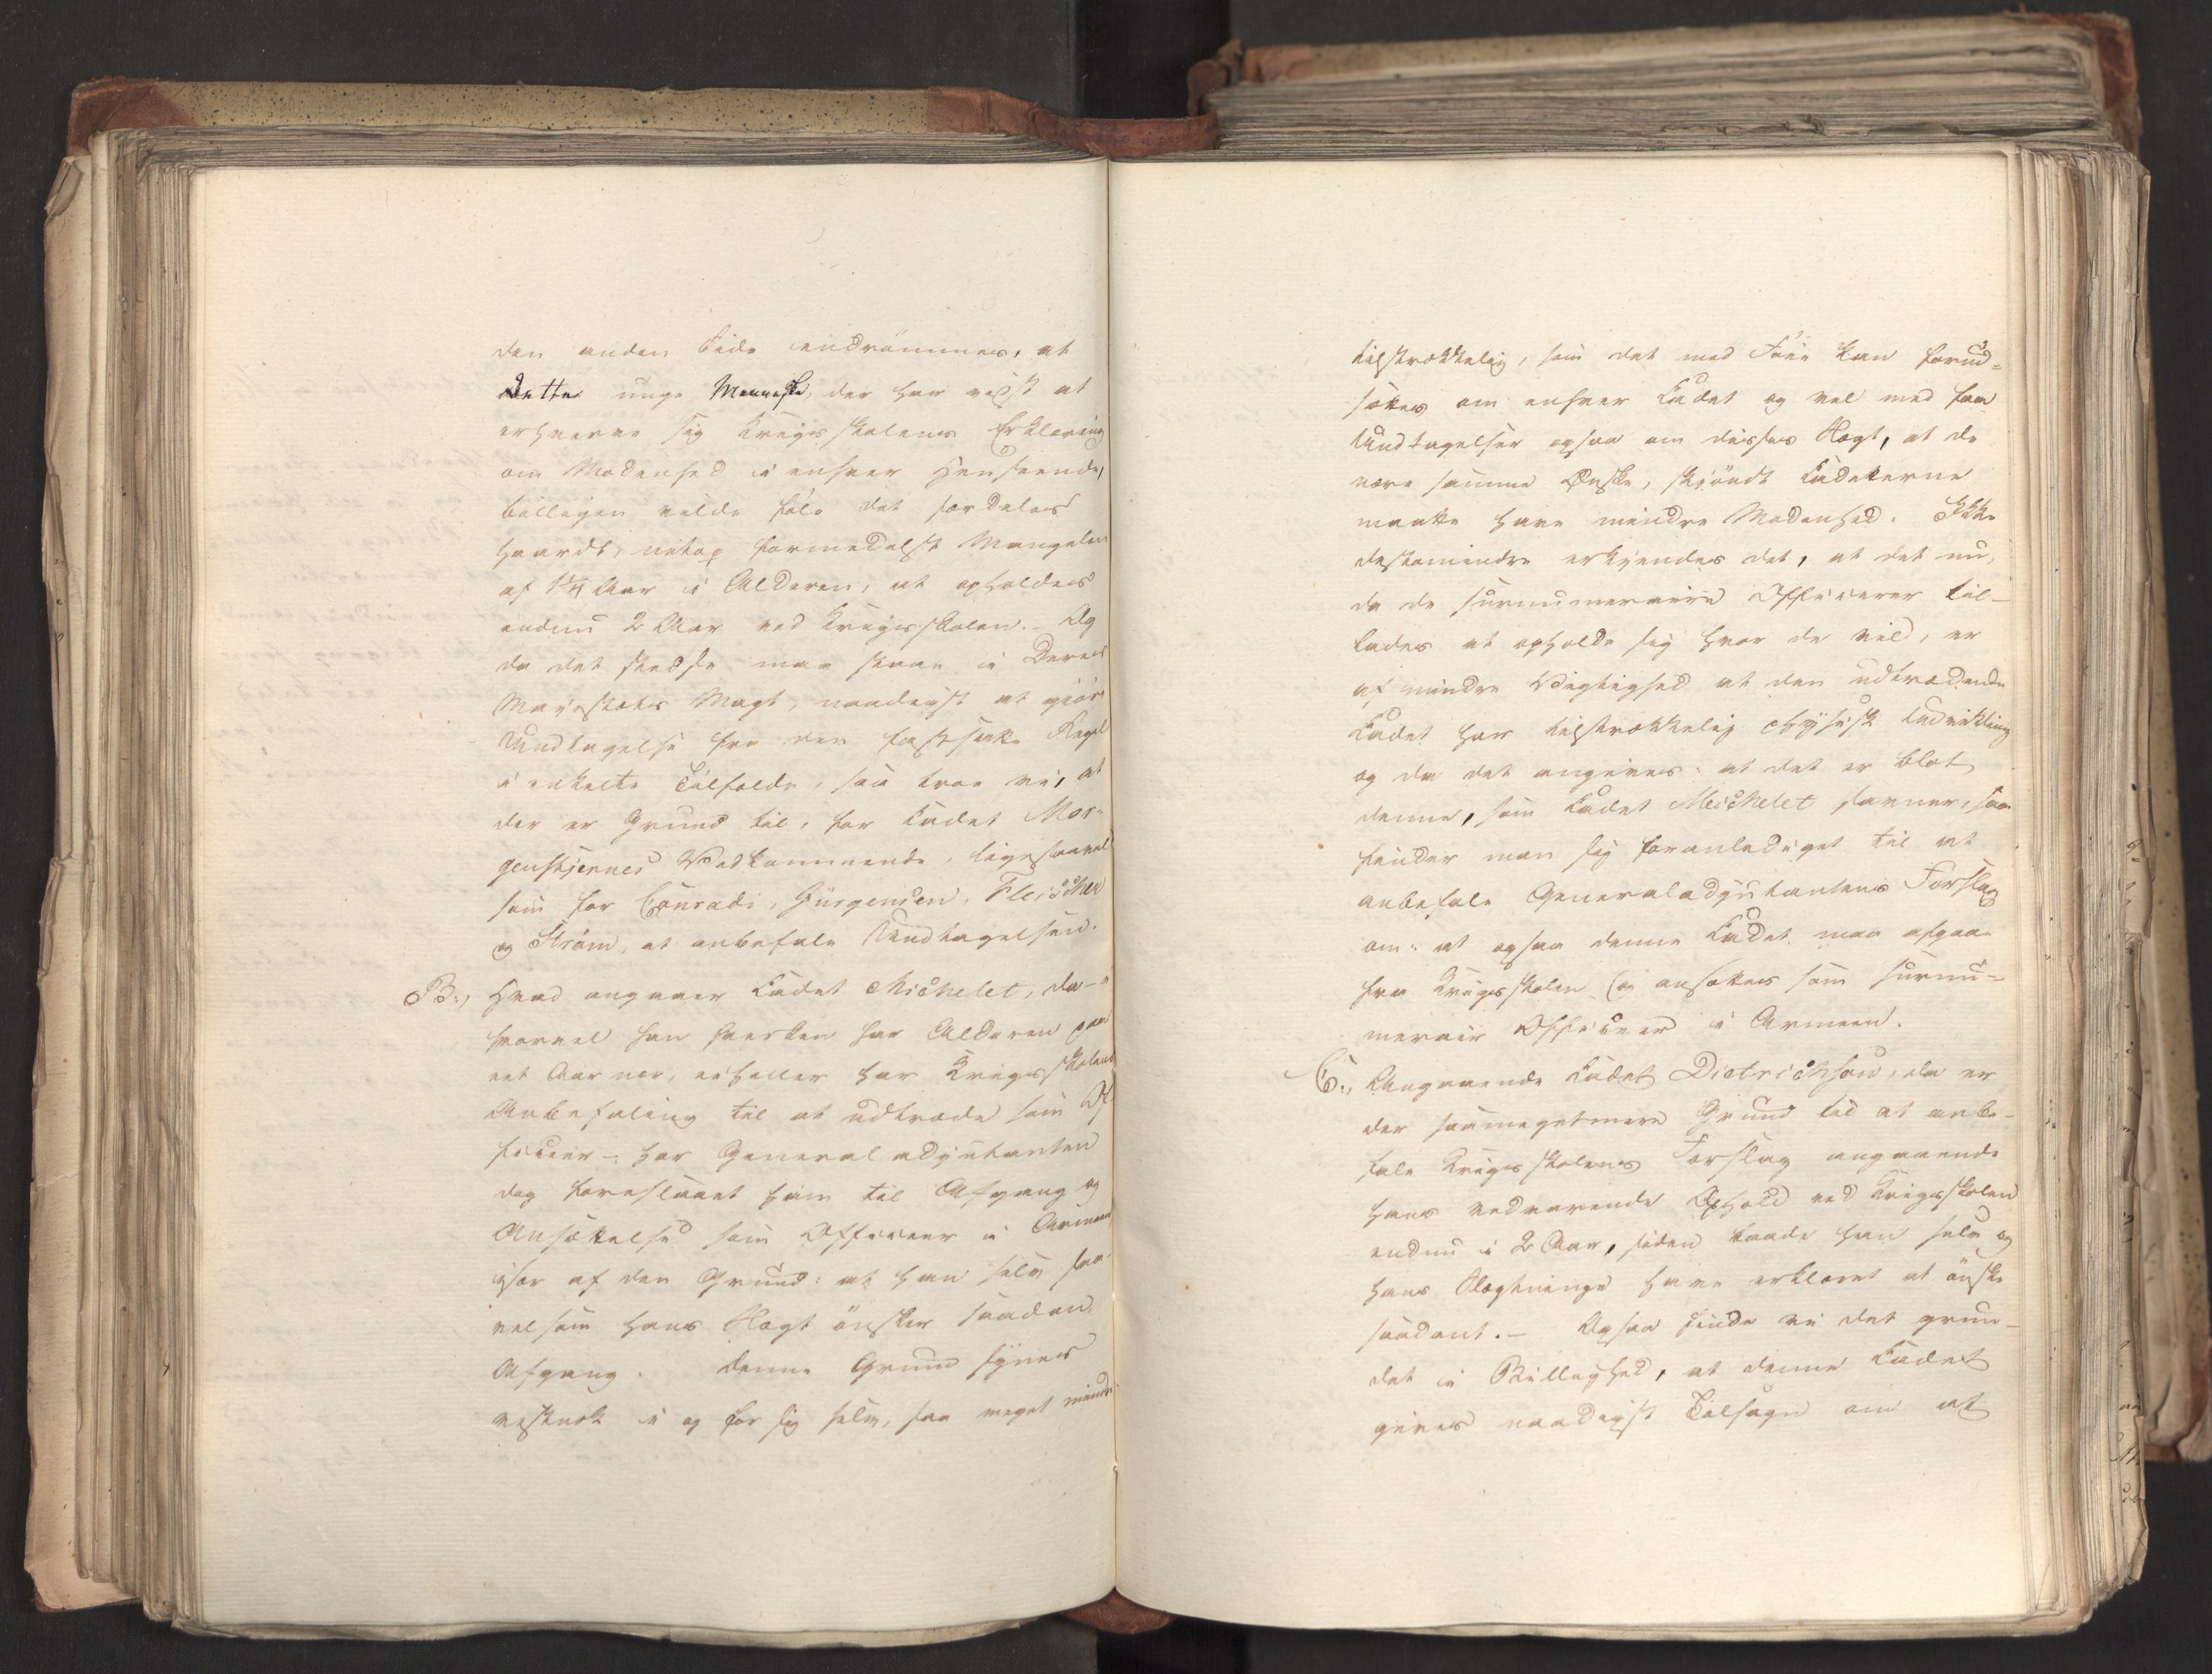 den anden Side indrømmes, at
dette unge Menneske, der har vidst at
erhverve sig Krigsskolens Erklæring
om Modenhed i enhver Henseende,
billigen vilde føle det særdeles
haardt, netop formedelst Mangelen
af 1¼ Aar i Alderen, at opholdes
endnu 2 Aar ved Krigsskolen. – Og
da det stedse maa staae i Deres
Majestæts Magt, naadigst at gjöre
Undtagelse fra den fastsatte Regel
i enkelte Tilfælde, saa troe vi, at
der er Grund til, for Cadet Mor-
genstjernes Vedkommende, ligesaavel
som for Conradi, Jürgensen, Fleischer
og Ström, at anbefale Undtagelsen.
B., Hvad angaaer Cadet Michelet, da –
hvorvel han hverken har Alderen paa
eet Aar nær, ei heller har Krigsskolens
Anbefaling til at udtræde som Of-
ficeer – har Generaladjutanten
dog foreslaaet ham til Afgang og
Ansættelse som Officeer i Armeen,
især af den Grund: at han selv saa-
vel som hans Slægt önsker saadan
Afgang. Denne Grund synes
vistnok i og for sig selv, saa meget mindre
tilstrækkelig, som det med Föie kan forud-
sættes om enhver Cadet og vel med faa
Undtagelser ogsaa om disses Slægt, at de
nære samme Ønske, skjöndt Cadetterne
maatte have mindre Modenhed. Ikke
destomindre erkjendes det, at det nu,
da de surnumeraire Officerer til-
lades at opholde sig hvor de vil, er
af mindre Vigtighed at den udtrædende
Cadet har tilstrækkelig physisk Udvikling
og da det angives: at det er blot
denne, som Cadet Michelet savner, saa
finder man sig foranlediget til at
anbefale Generaladjutantens Forslag
om: at ogsaa denne Cadet maa afgaae
fra Krigsskolen og ansættes som surnu-
merair Officeer i Armeen.
C., Angaaende Cadet Dietrichson, da er
der saameget mere Grund til at anbe-
fale Krigsskolens Forslag angaaende
hans vedvarende Ophold ved Krigsskolen
endnu i 2 Aar, siden baade han selv og
hans Slægtninge have erklæret at önske
saadant. – Ogsaa finde vi det grun-
det i Billighed, at denne Cadet
gives naadigst Tilsagn om at